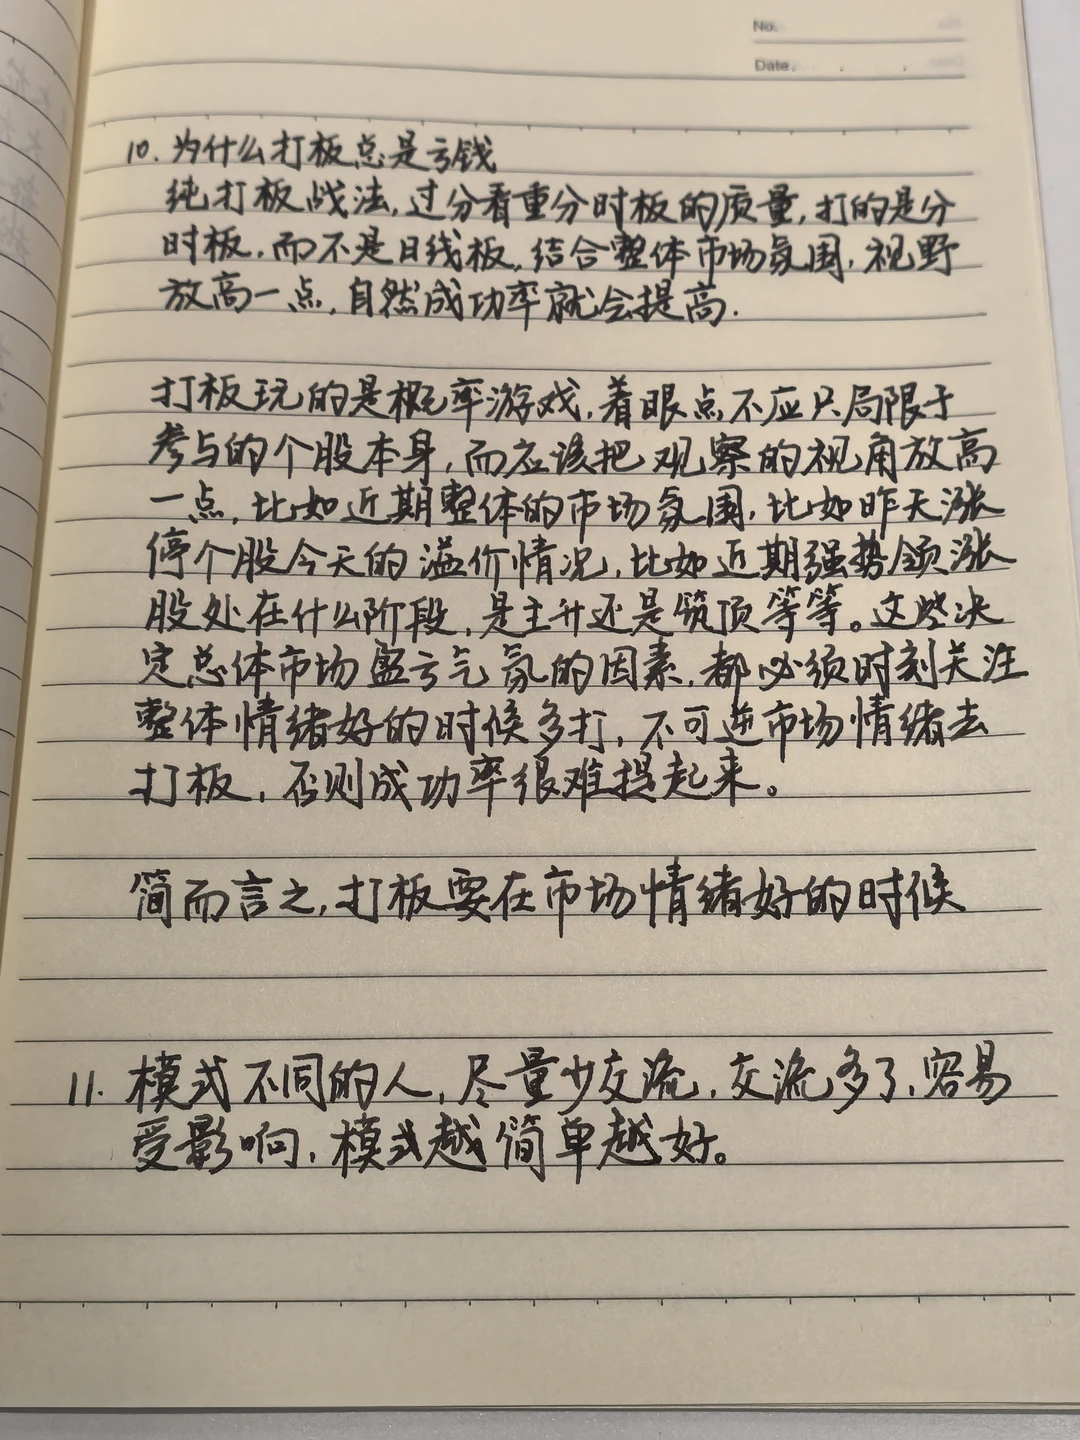 No.
Date.
10. 为什么打板总是亏钱
纯打板战法, 过分看重分时板的质量, 打的是分
时板, 而不是日线板, 结合整体市场氛围, 视野
放高一点, 自然成功率就会提高.
打板玩的是概率游戏, 着眼点不应只局限于
参与的个股本身, 而应该把观察的视角放高
一点, 比如近期整体的市场氛围, 比如昨天涨
停个股今天的溢价情况, 比如近期强势领涨
股处在什么阶段, 是主升还是筑顶等等。这些决
定总体市场盈亏气氛的因素, 都必须时刻关注
整体情绪好的时候多打, 不可逆市场情绪去
打板, 否则成功率很难提起来。
简而言之, 打板要在市场情绪好的时候
11. 模式不同的人, 尽量少交流, 交流多了, 容易
受影响, 模式越简单越好。